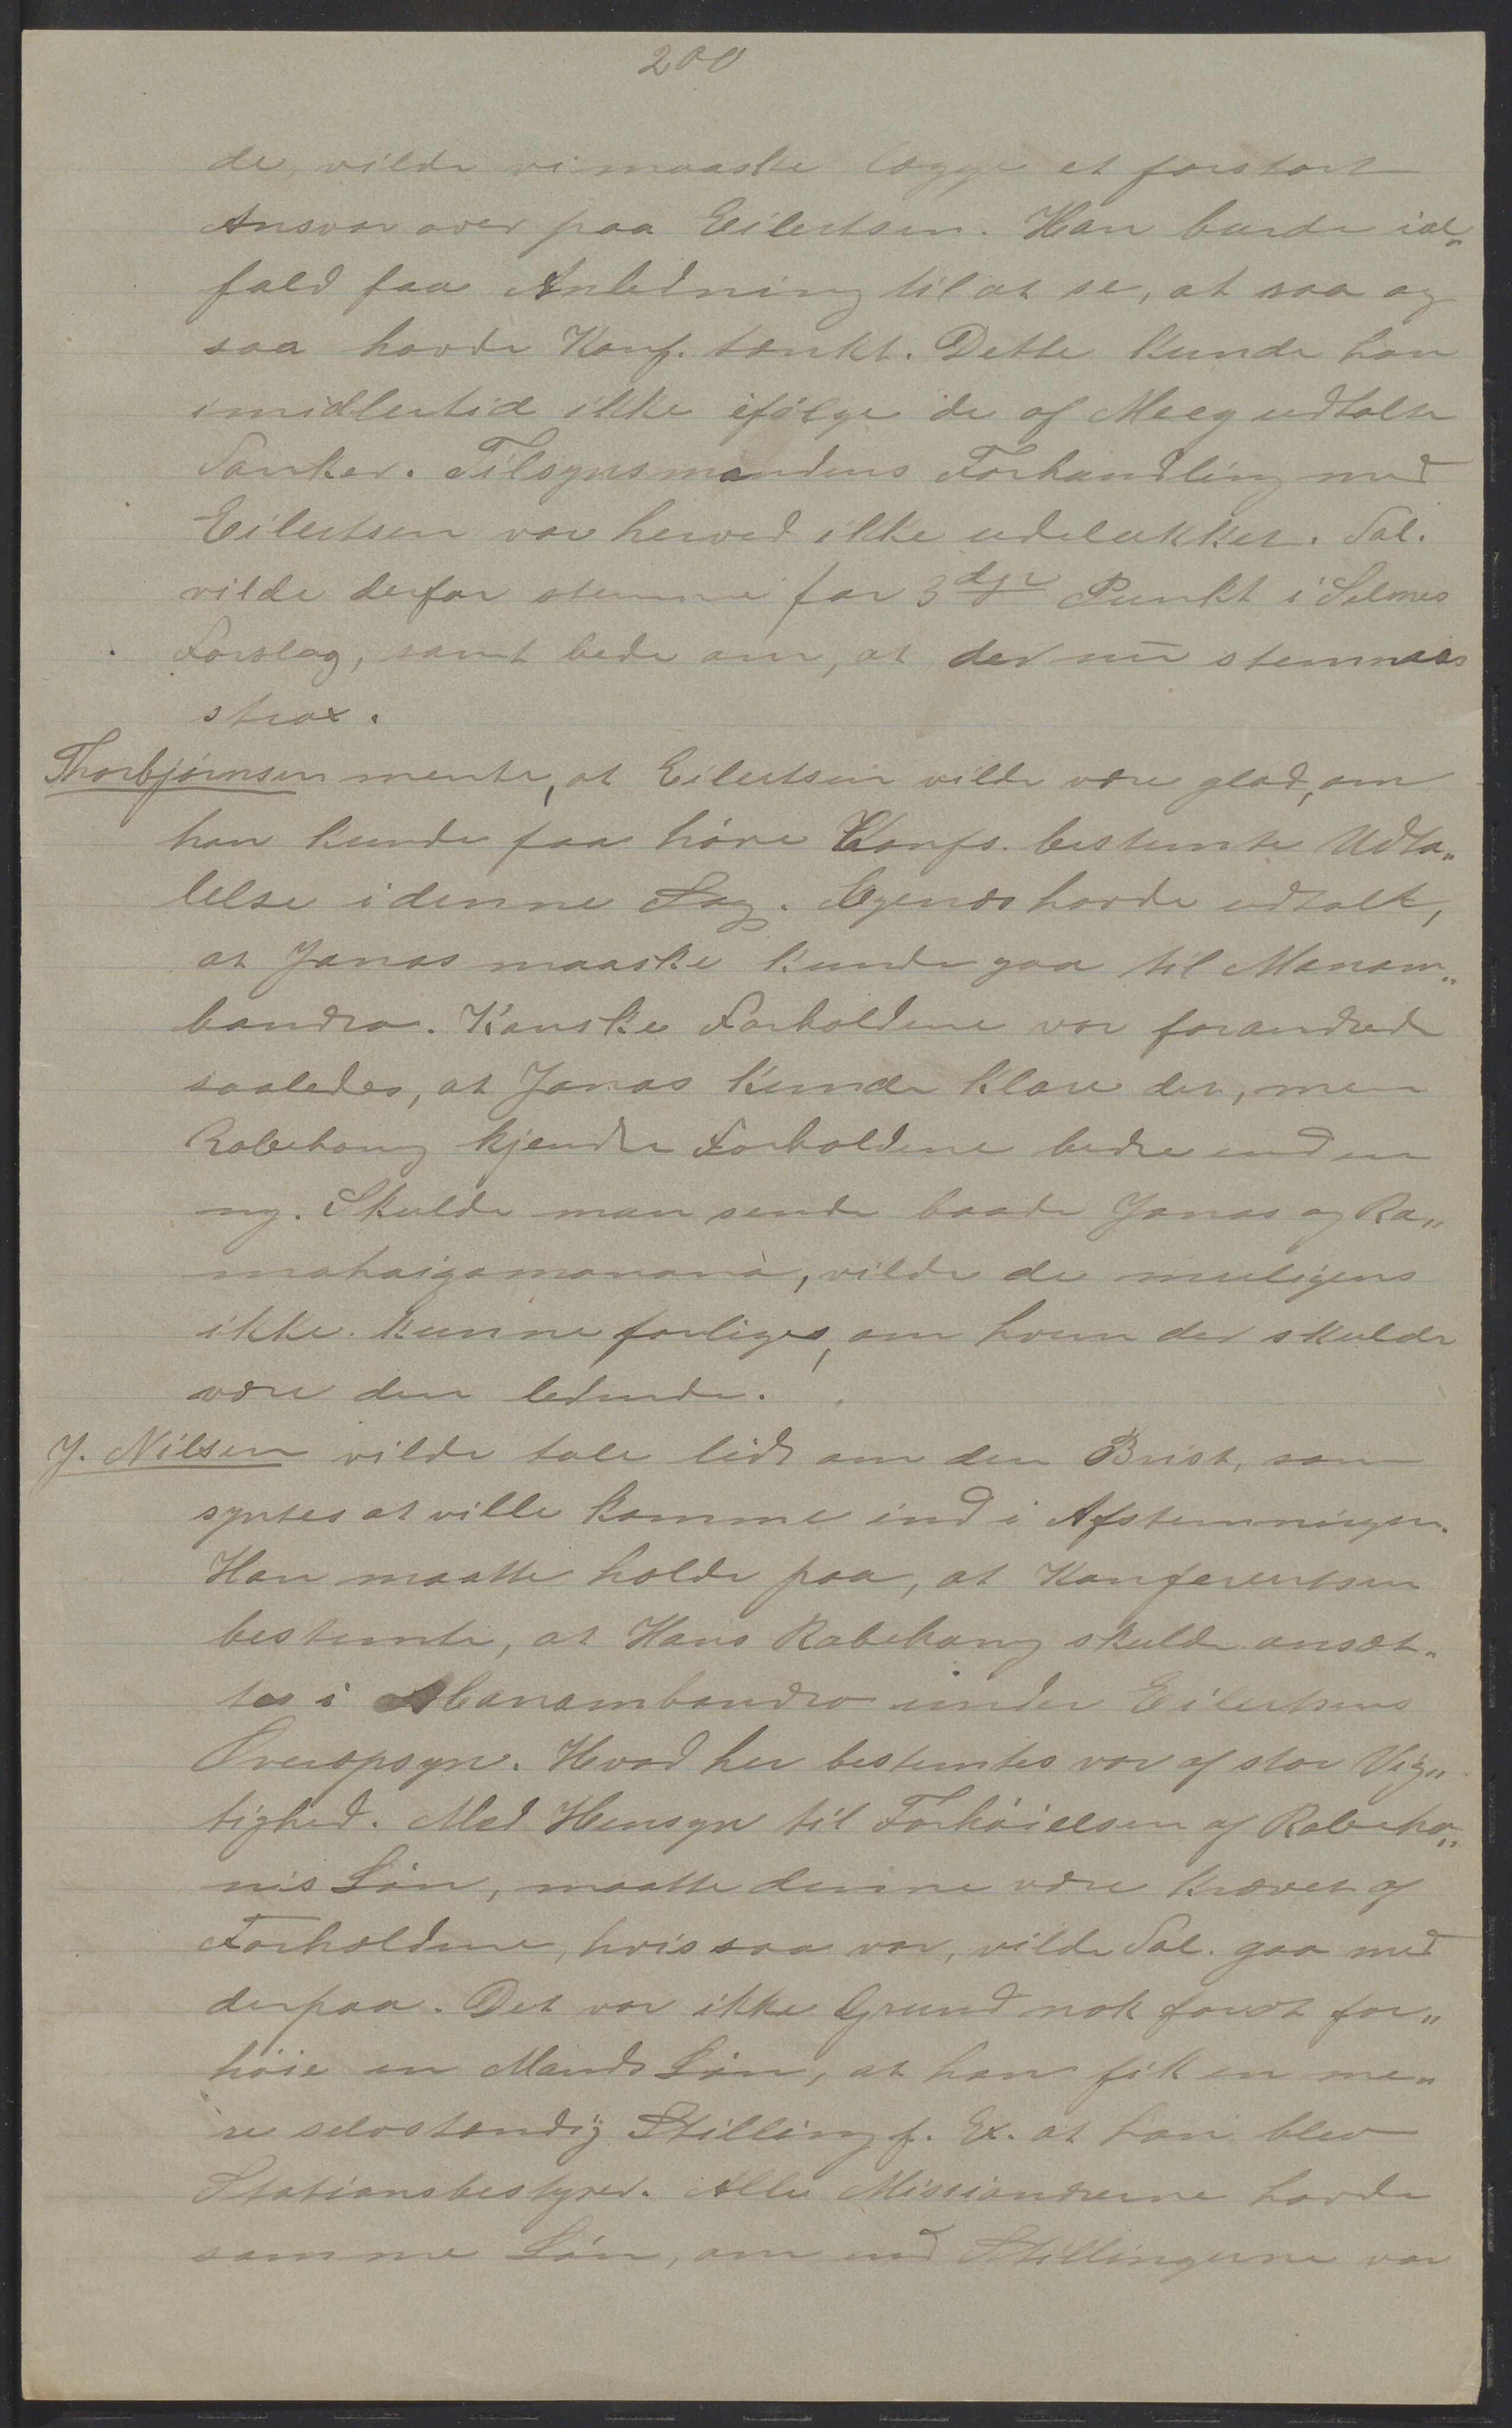 200
de, vilde vi maaske lægge et forstort
Ansvar over paa Eilertsen. Han burde ial„
fald faa Anledning til at se, at saa og
saa havde Konf. tænkt. Dette kunde han
imidlertid ikke ifølge de af Meeg udtalte
Tanker. Tilsynsmandens Forhandling med
Eilertsen var herved ikke udelukket. Tal.
vilde derfor stemme for 3dje Punkt i Selmes
Forslag, samt bede om, at der nu stemmes
strax.
Thorbjørnsen mente, at Eilertsen vilde være glad, om
han kunde faa høre Konfs. bestemte Udta„
lelse i denne Sag. Egenæs havde udtalt,
at Jonas maaske kunde gaa til Manam„
bondro. Kanske Forholdene var forandrede
saaledes, at Jonas kunde klare det, men
Rabehang kjendte Forholdene bedre end en
ny. Skulde man sende baade Jonas og Ra„
mahaigamanana, vilde de muligens
ikke kunne forliges, om hvem der skulde
være den ledende.
J. Nilsen vilde tale lidt om den Brist, som
syntes at ville komme ind i Afstemningen.
Han maatte holde paa, at Konferentsen
bestemte, at Hans Rabehang skulde ansæt„
tes i Manambondro under Eilertsens
Overopsyn. Hvad her bestemtes var af stor Vig„
tighed. Med Hensyn til Forhøielsen af Rabeha„
nis Løn, maatte denne være krævet af
Forholdene, hvis saa var, vilde Tal. gaa med
derpaa. Det var ikke Grund nok for at for„
høie en Mands Løn, at han fik en me„
re selvstændig Stilling f. Ex. at han blev
Stationsbestyrer. Alle Missionærerne havde
samme Løn, om end Stillingerne var